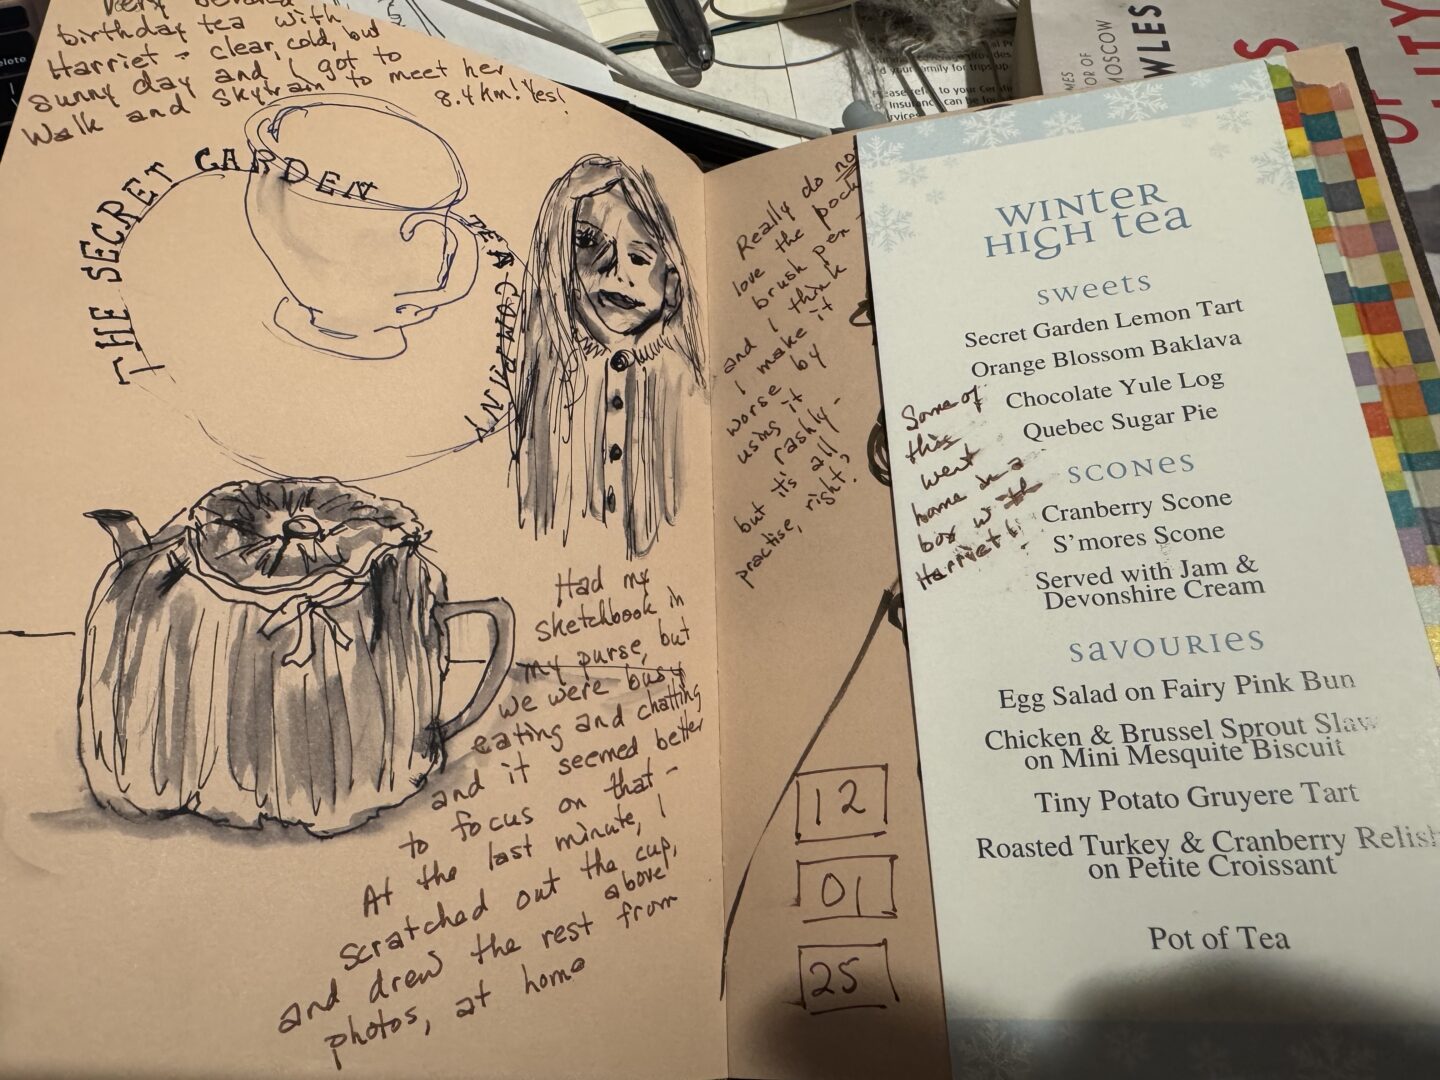 Very belated
birthday tea with
Harriet - clear, cold, but
sunny day and I got to
walk and Skytrain to meet her
8.4 km! Yes!
THE SECRET GARDEN
TEA COMPANY
Had my
sketchbook in
my purse, but
we were busy
eating and chatting
and it seemed better
to focus on that -
At the last minute, I
scratched out the cup,
above
and drew the rest from
photos, at home
Really do no
love the pock
brush pen -
and I think
I make it
worse by
using it
rashly -
but it's all
practise, right?
12
01
25
WINTER
HIGH tea
sweets
Secret Garden Lemon Tart
Orange Blossom Baklava
Chocolate Yule Log
Quebec Sugar Pie
Some of
this
went
home in a
box with
Harriet!
SCONES
Cranberry Scone
S'mores Scone
Served with Jam &
Devonshire Cream
SAVOURIES
Egg Salad on Fairy Pink Bun
Chicken & Brussel Sprout Slaw
on Mini Mesquite Biscuit
Tiny Potato Gruyere Tart
Roasted Turkey & Cranberry Relish
on Petite Croissant
Pot of Tea
delete
d your family for trips up
Insurance can be
MOSCOW
WLES